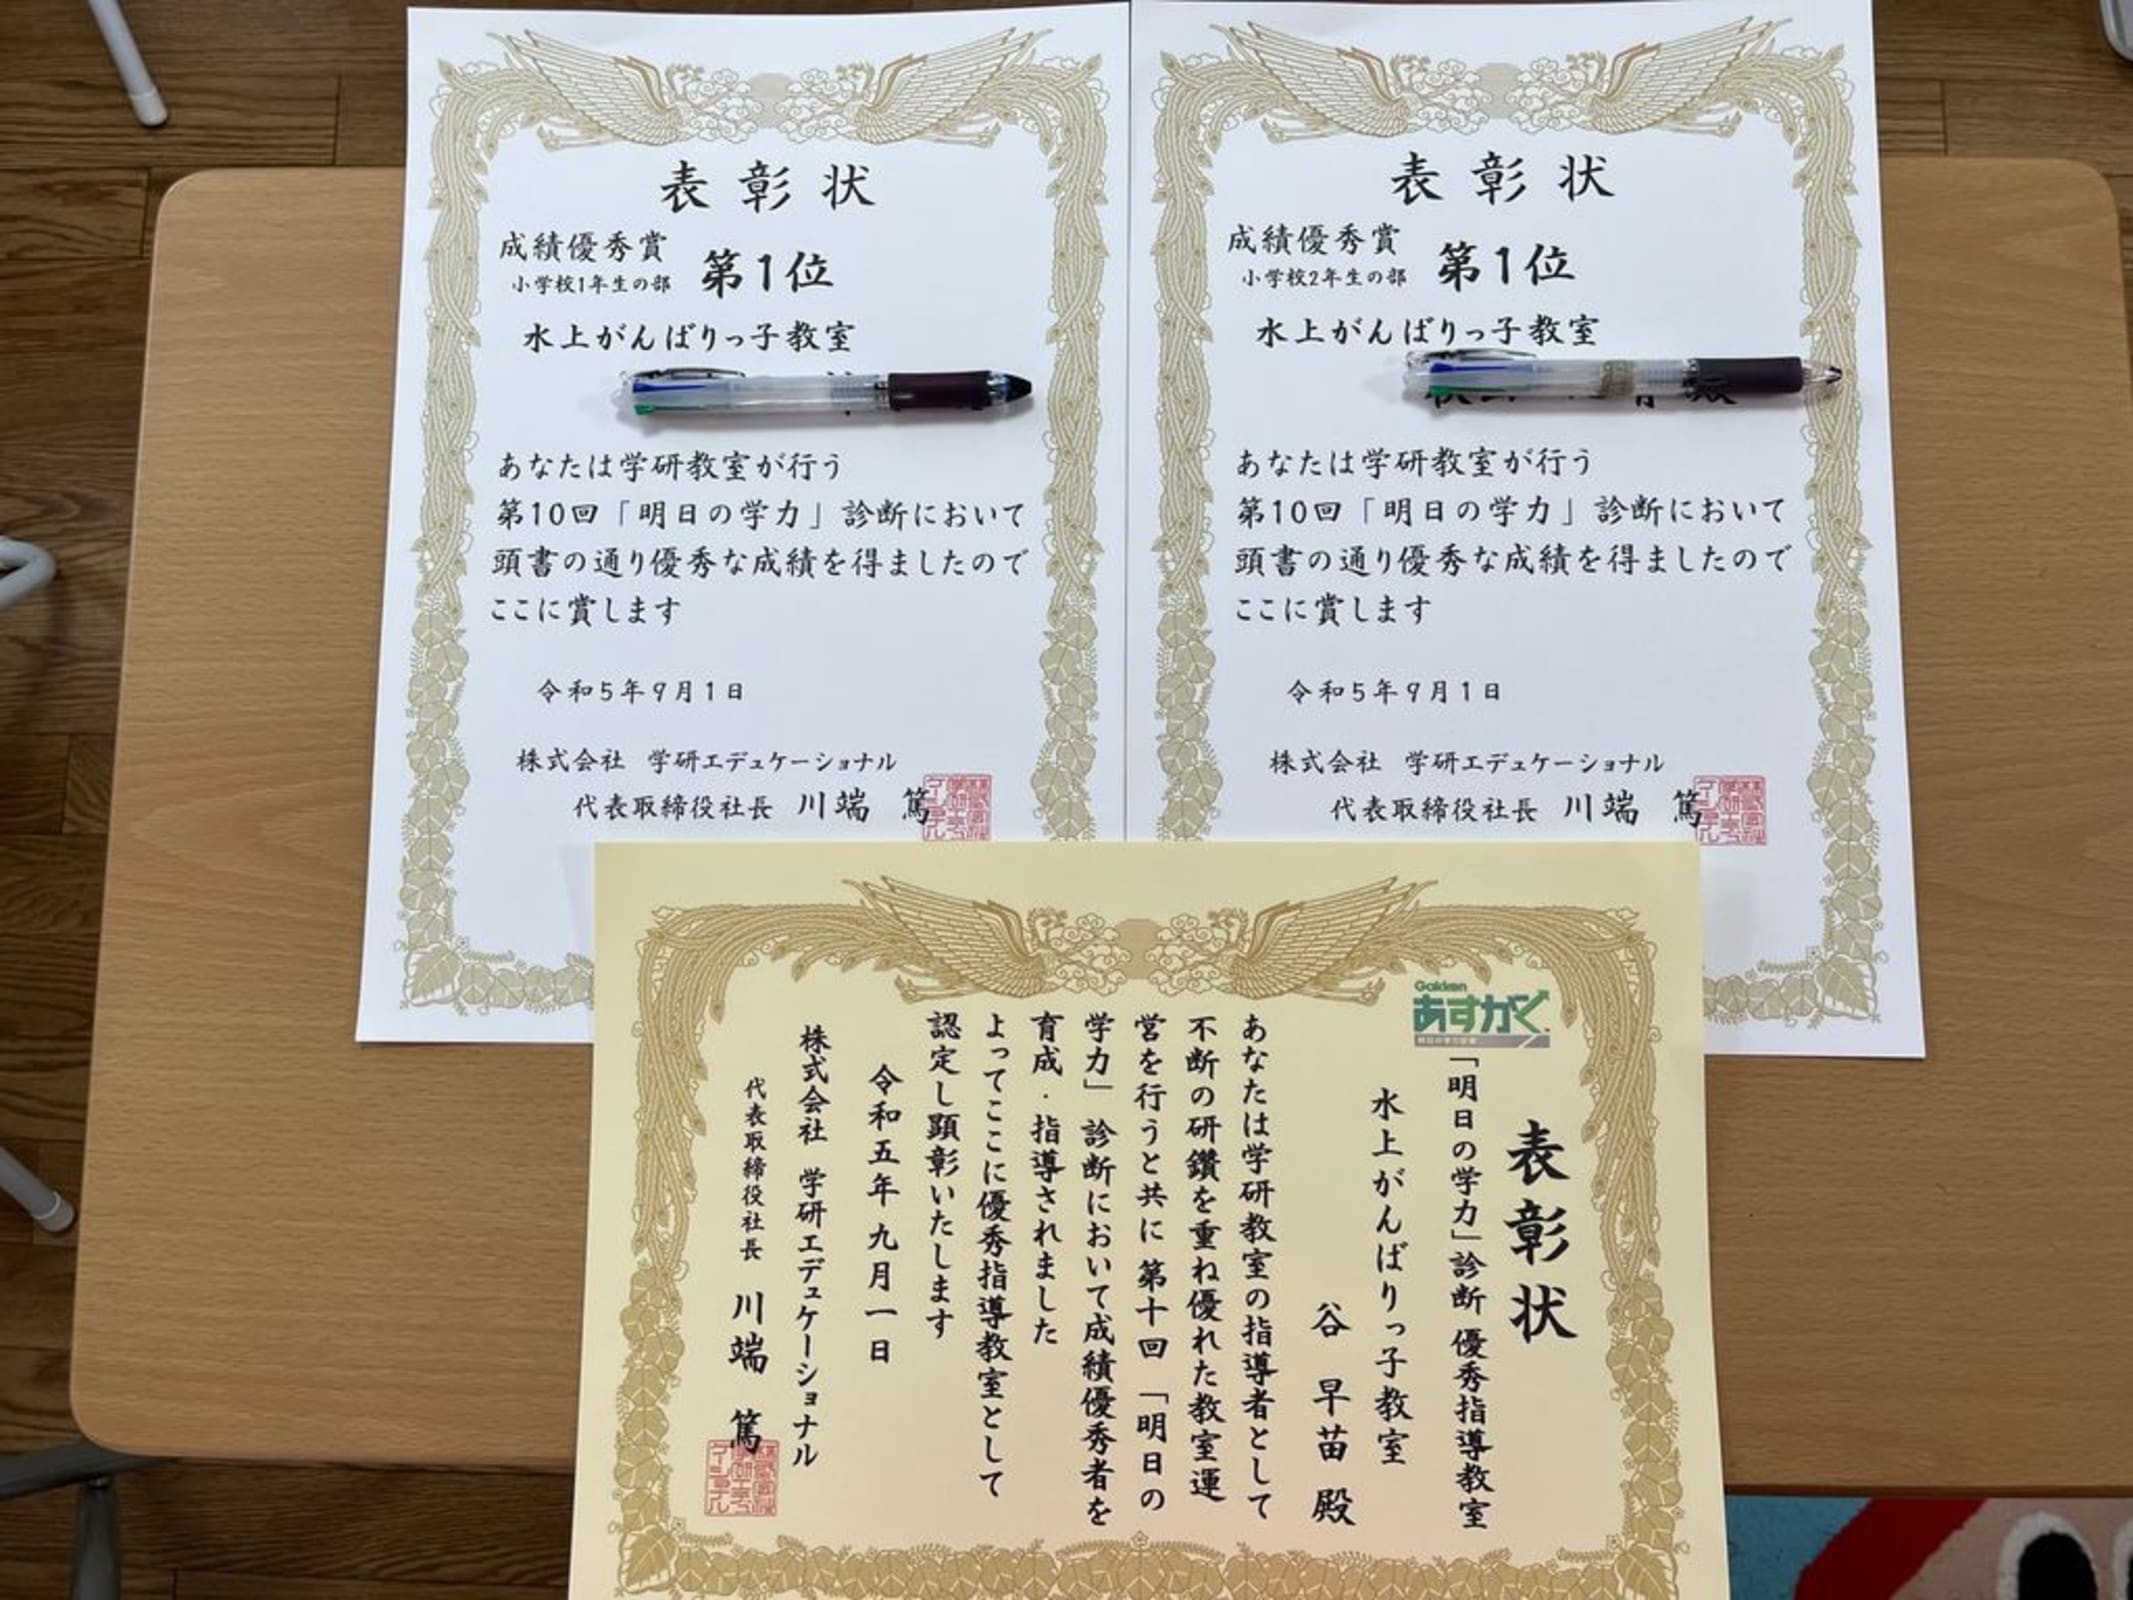 表彰状
成績優秀賞
小学校1年生の部
第1位
水上がんばりっ子教室
あなたは学研教室が行う
第10回「明日の学力」診断において
頭書の通り優秀な成績を得ましたので
ここに賞します
令和5年9月1日
株式会社 学研エデュケーショナル
代表取締役社長 川端 篤
表彰状
成績優秀賞
小学校2年生の部
第1位
水上がんばりっ子教室
あなたは学研教室が行う
第10回「明日の学力」診断において
頭書の通り優秀な成績を得ましたので
ここに賞します
令和5年9月1日
株式会社 学研エデュケーショナル
代表取締役社長 川端 篤
Gakken
あすがく
表彰状
「明日の学力」診断 優秀指導教室
水上がんばりっ子教室
谷 早苗 殿
あなたは学研教室の指導者として
不断の研鑽を重ね優れた教室運
営を行うと共に 第十回 「明日の
学力」 診断において成績優秀者を
育成・指導されました
よってここに優秀指導教室として
認定し顕彰いたします
令和五年九月一日
株式会社 学研エデュケーショナル
代表取締役社長 川端 篤